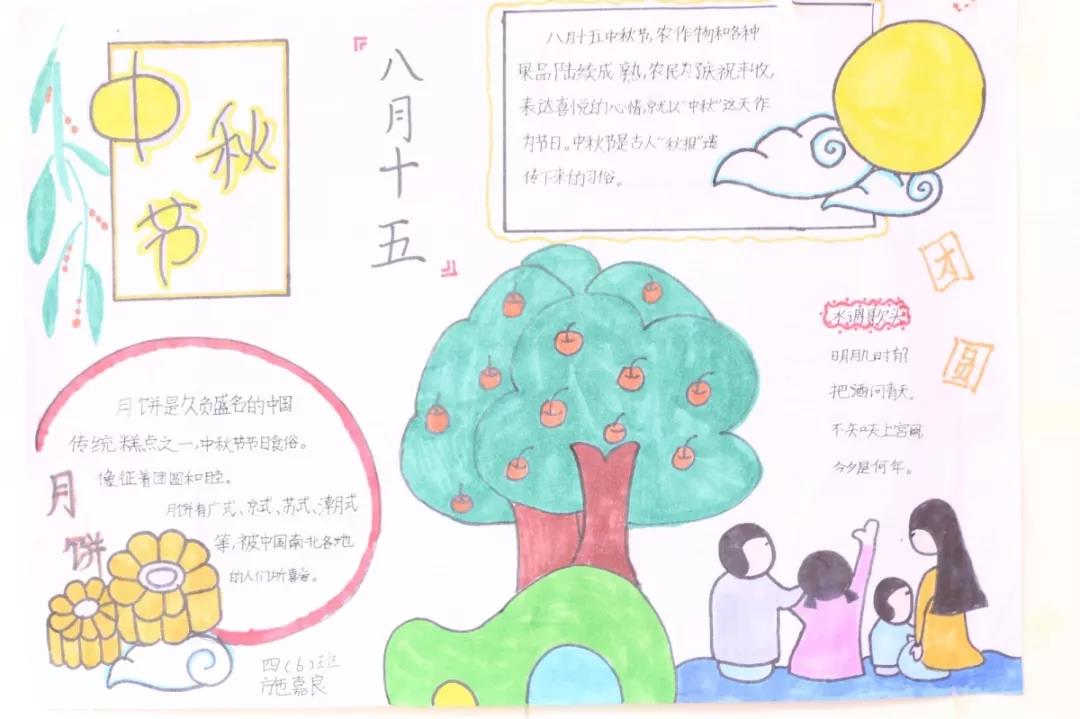 中秋节
『
八月十五
』
八月十五中秋节,农作物和各种
果品陆续成熟,农民为了庆祝丰收,
表达喜悦的心情,就以“中秋”这天作
为节日。中秋节是古人“秋报”遗
传下来的习俗。
团
圆
水调歌头
明月几时有?
把酒问青天。
不知天上宫阙,
今夕是何年。
月饼是久负盛名的中国
传统糕点之一,中秋节节日食俗。
像征着团圆和睦。
月饼有广式、京式、苏式、潮式
等,被中国南北各地
的人们所喜爱。
月饼
四(6)班
施嘉良